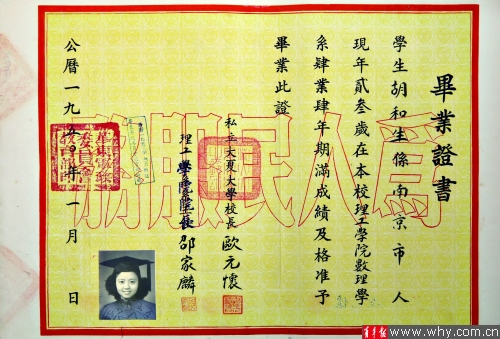 畢業證書
學生胡和生係南京市人
現年貳叁歲在本校理工學院數理學
系肄業肄年期滿成績及格准予
畢業此證
私立大夏大學校長歐元懷
理工學院院長邵家麟
公曆一九五〇年一月 日
爲人民服務
青年报 www.why.com.cn